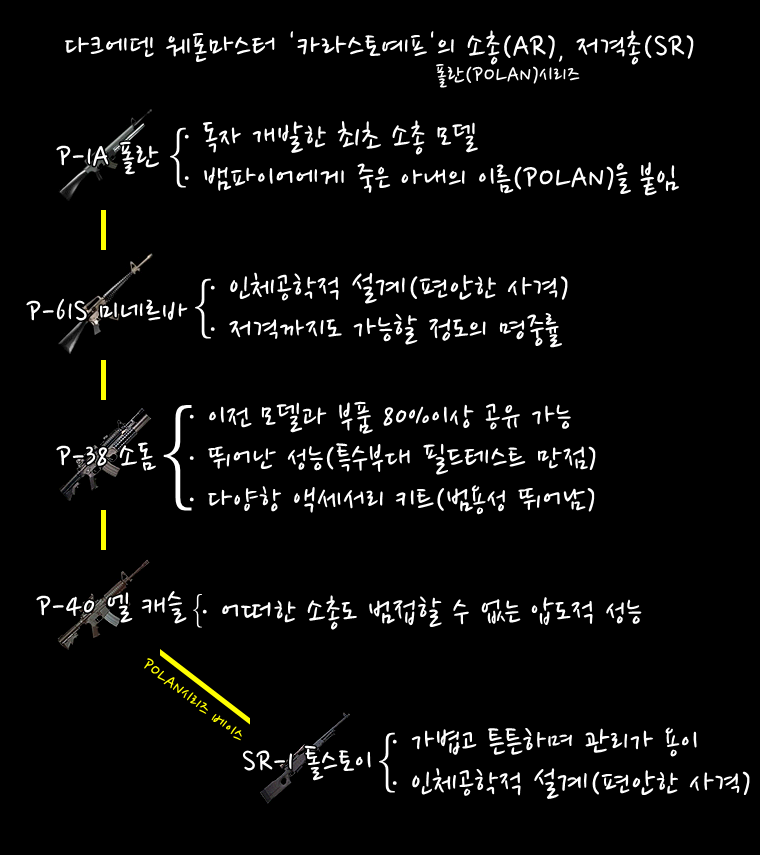 다크에덴 웨폰마스터 '카라스토예프'의 소총(AR), 저격총(SR)
폴란(POLAN)시리즈
P-1A 폴란
· 독자 개발한 최초 소총 모델
· 뱀파이어에게 죽은 아내의 이름(POLAN)을 붙임
P-61S 미네르바
· 인체공학적 설계(편안한 사격)
· 저격까지도 가능할 정도의 명중률
P-38 소돔
· 이전 모델과 부품 80%이상 공유 가능
· 뛰어난 성능(특수부대 필드테스트 만점)
· 다양항 액세서리 키트(범용성 뛰어남)
P-40 엘 캐슬
· 어떠한 소총도 범접할 수 없는 압도적 성능
POLAN시리즈 베이스
SR-1 톨스토이
· 가볍고 튼튼하며 관리가 용이
· 인체공학적 설계(편안한 사격)